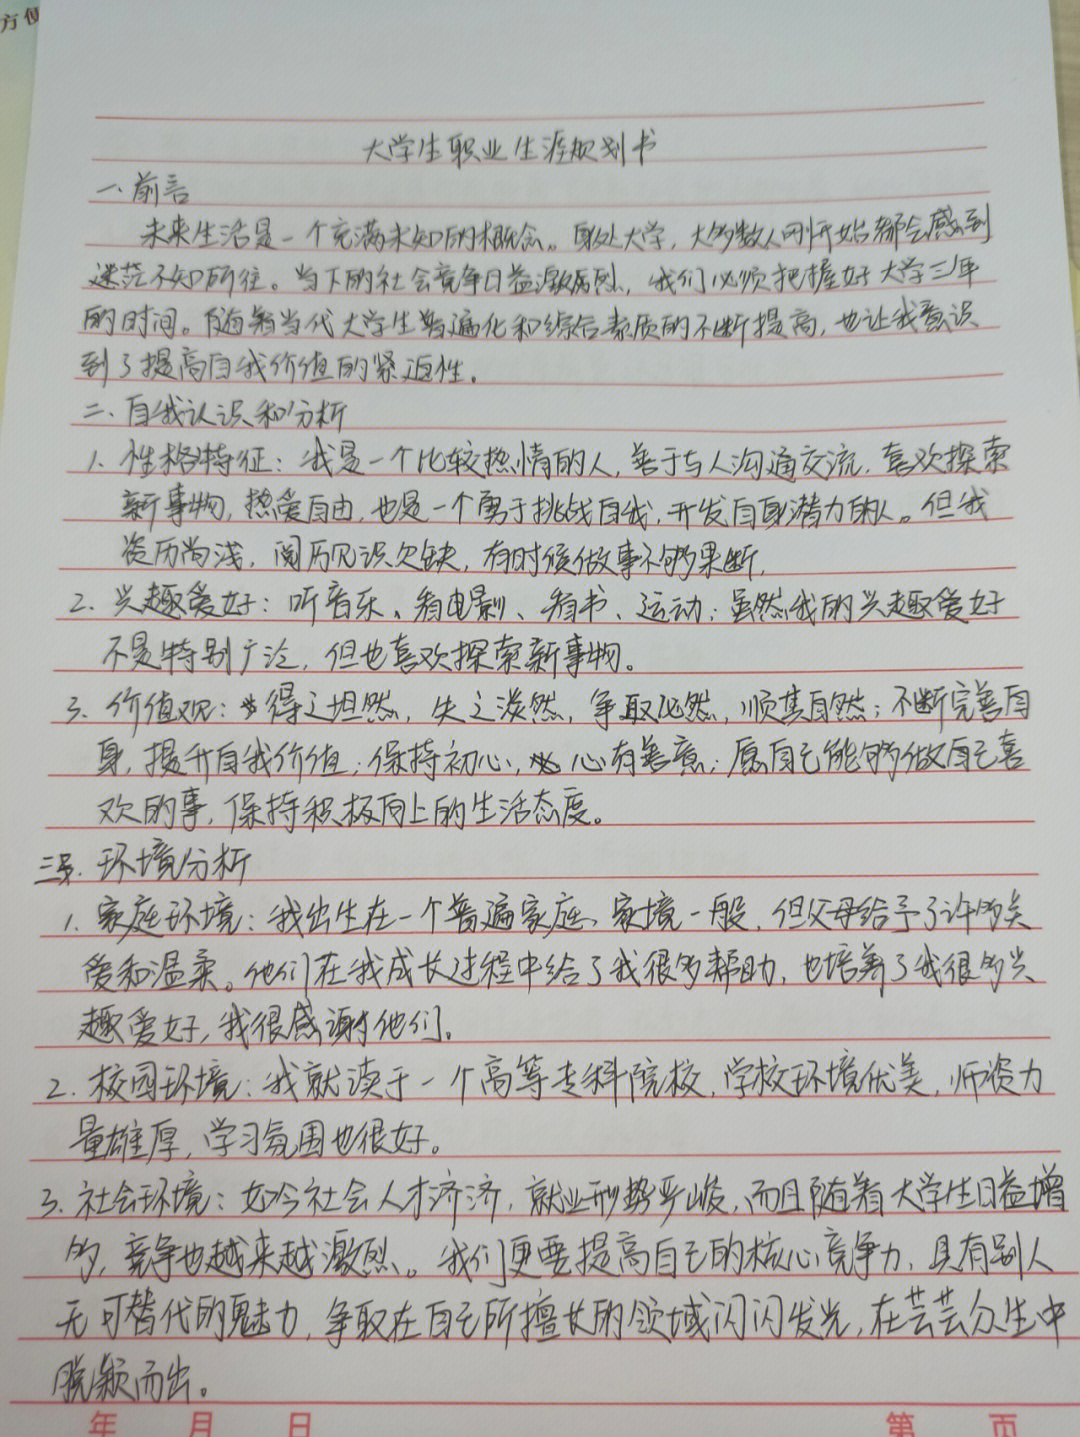 方便
大学生职业生涯规划书
一、前言
未来生活是一个充满未知的概念。身处大学，大多数人刚开始都会感到
迷茫不知所往。当下的社会竞争日益激烈，我们必须把握好大学三年
的时间。随着当代大学生普遍化和综合素质的不断提高，也让我意识
到了提高自我价值的紧迫性。
二、自我认识和分析
1、性格特征：我是一个比较热情的人，善于与人沟通交流，喜欢探索
新事物，热爱自由，也是一个勇于挑战自我，开发自身潜力的人。但我
资历尚浅，阅历见识欠缺，有时候做事不够果断，
2、兴趣爱好：听音乐、看电影、看书、运动；虽然我的兴趣爱好
不是特别广泛，但也喜欢探索新事物。
3、价值观：得之坦然，失之淡然，争取必然，顺其自然；不断完善自
身，提升自我价值；保持初心，心有善意；愿自己能够做自己喜
欢的事，保持积极向上的生活态度。
三、环境分析
1、家庭环境：我出生在一个普遍家庭、家境一般，但父母给予了许多关
爱和温柔。他们在我成长过程中给了我很多帮助，也培养了我很多兴
趣爱好，我很感谢他们。
2、校园环境：我就读于一个高等专科院校，学校环境优美，师资力
量雄厚，学习氛围也很好。
3、社会环境：如今社会人才济济，就业形势严峻，而且随着大学生日益增
多，竞争也越来越激烈。我们更要提高自己的核心竞争力，具有别人
无可替代的魅力，争取在自己所擅长的领域闪闪发光，在芸芸众生中
脱颖而出。
年 月 日 第 页